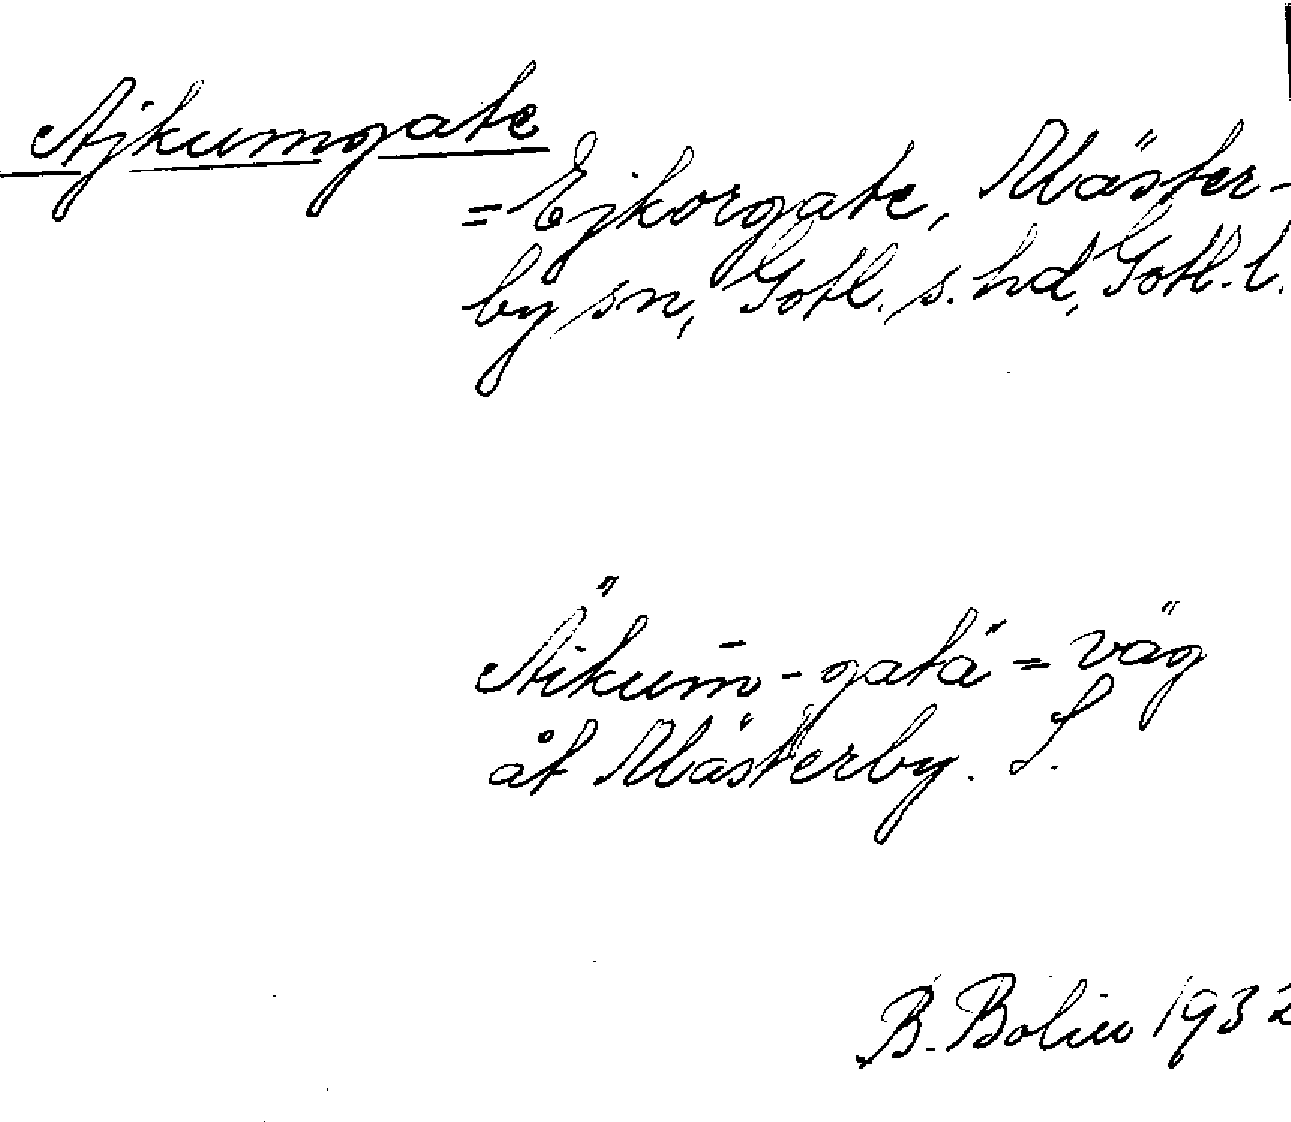 Ajkumgate
= Ejkorgate, Mäster-
by sn, Gotl. s. hd, Gotl. l.
Äikum̄-gatä = väg
åt Mästerby. S.
B. Bolin 1932